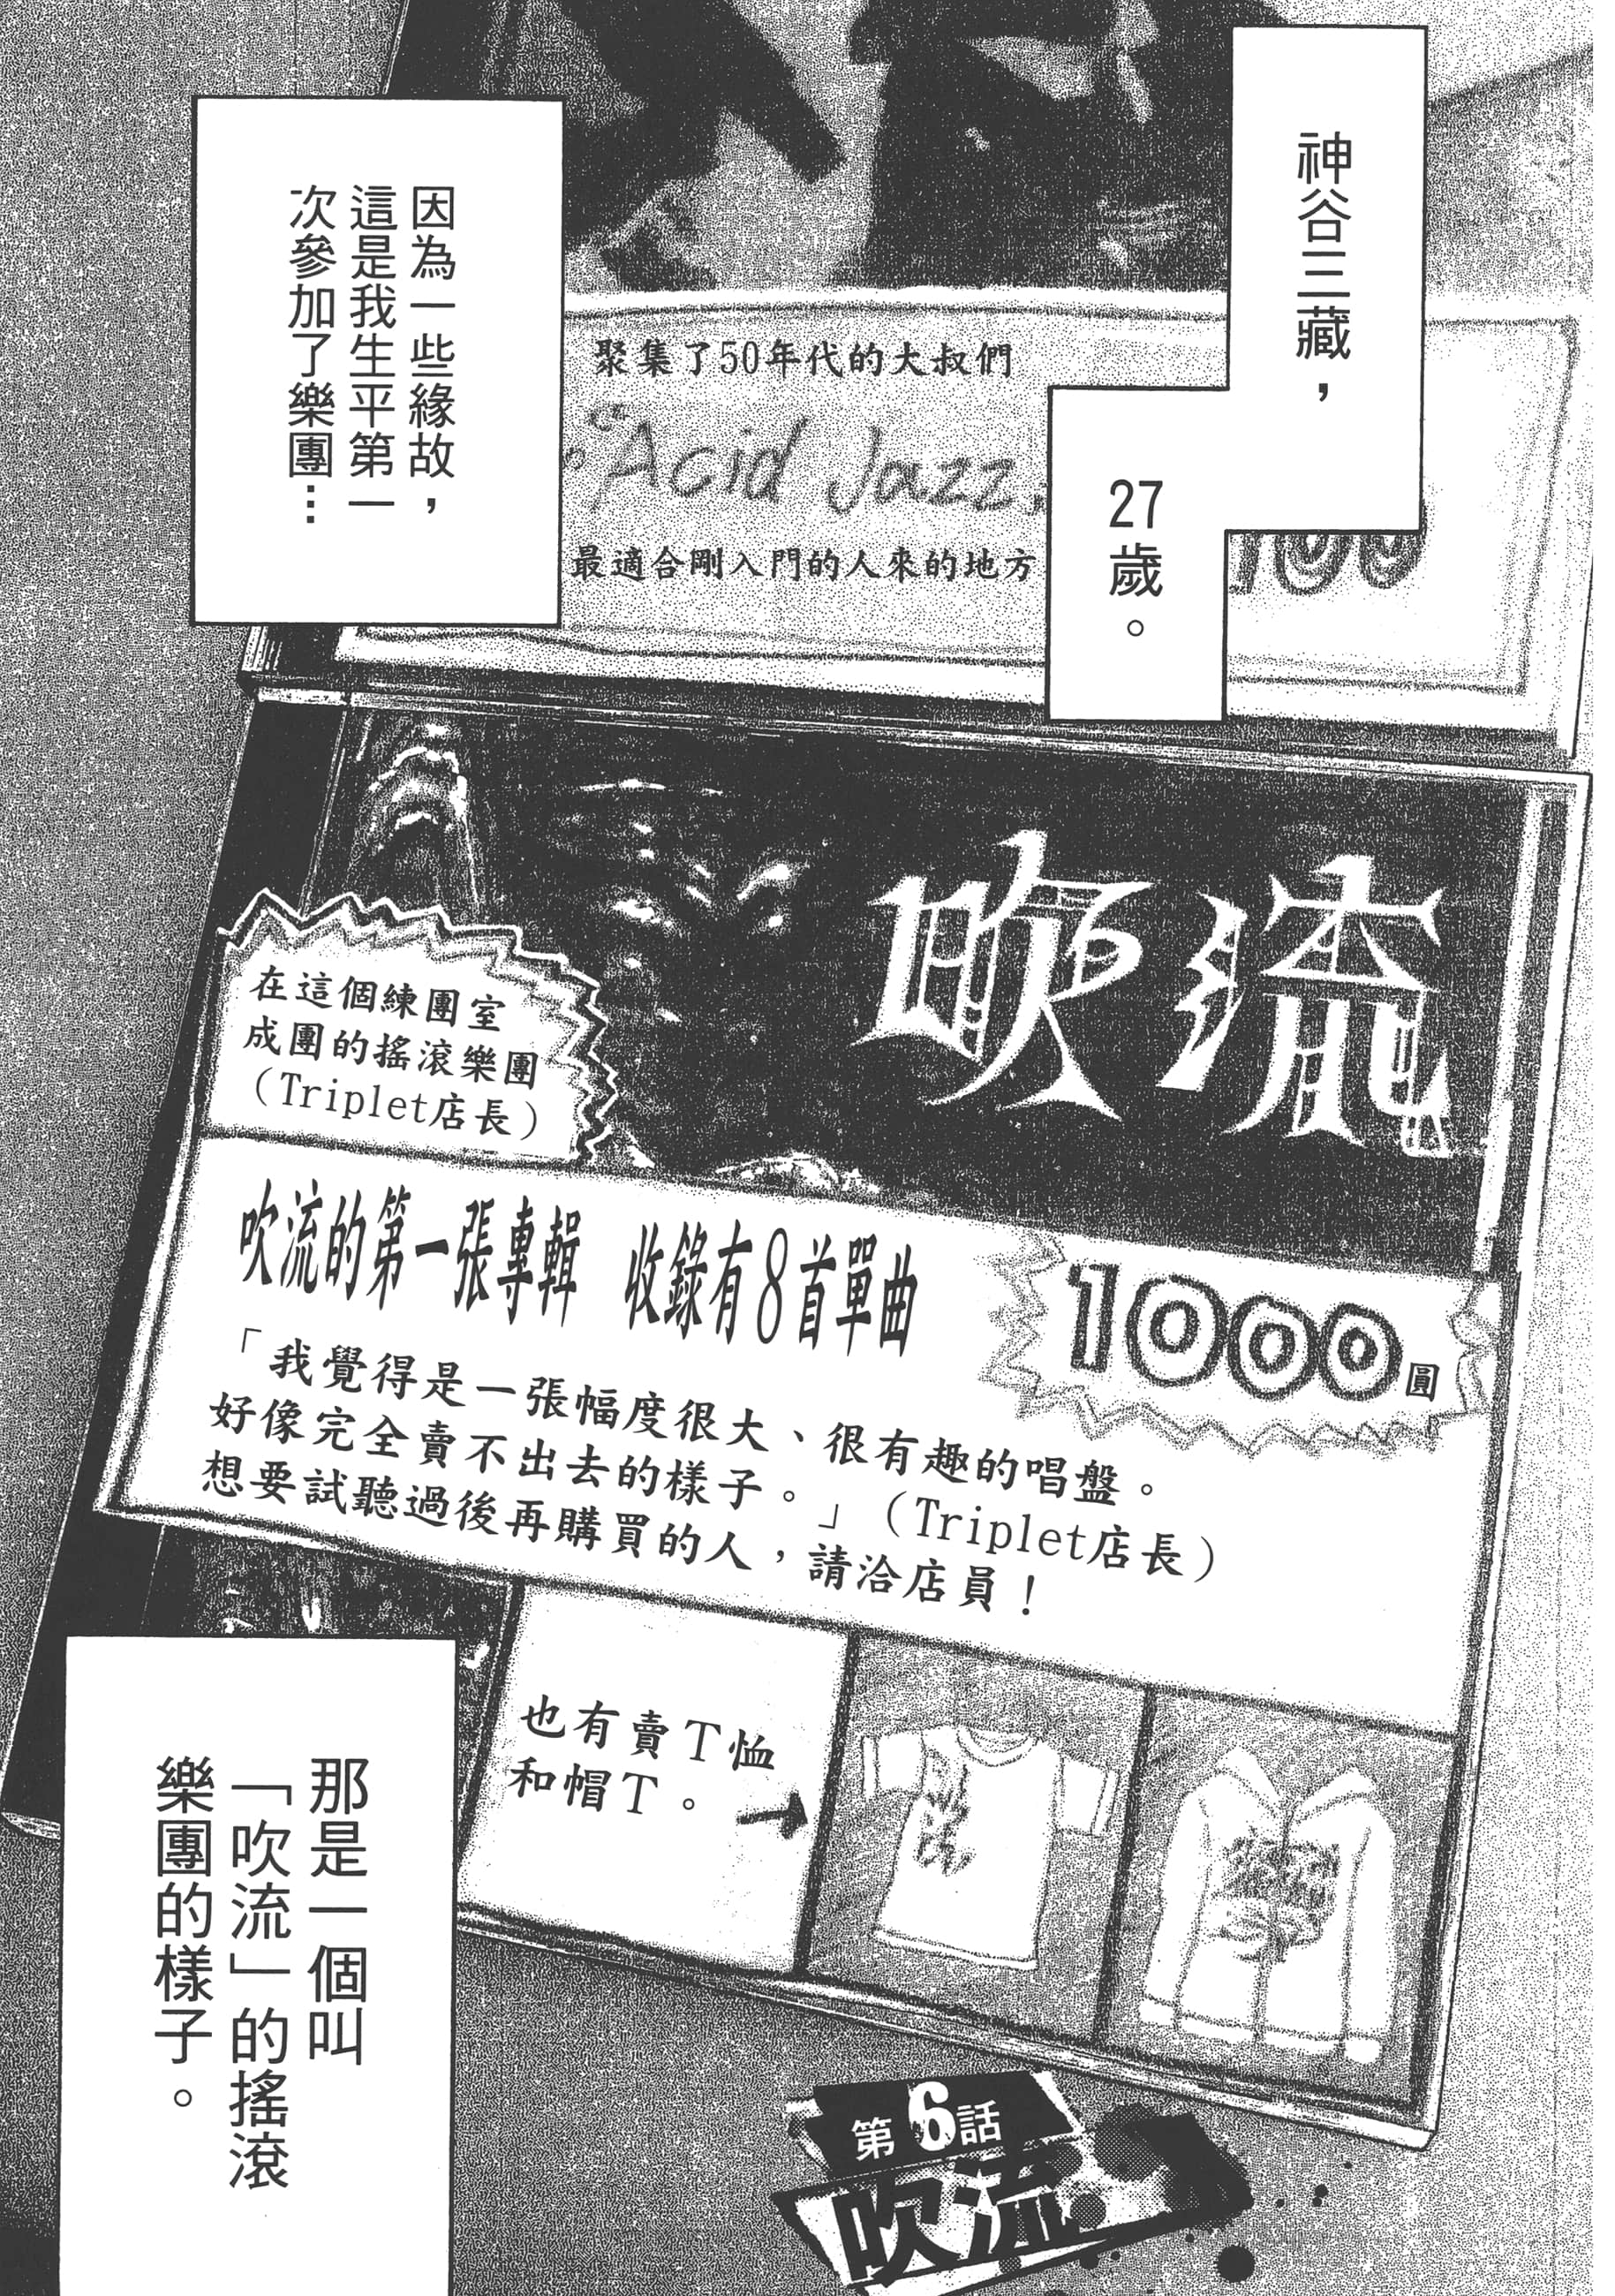 神谷三藏，
27歲。
因為一些緣故，
這是我生平第一
次參加了樂團…
聚集了50年代的大叔們
Acid Jazz
最適合剛入門的人來的地方
吹流
在這個練團室
成團的搖滾樂團
（Triplet店長）
吹流的第一張專輯　收錄有8首單曲
1000圓
「我覺得是一張幅度很大、很有趣的唱盤。
好像完全賣不出去的樣子。」（Triplet店長）
想要試聽過後再購買的人，請洽店員！
也有賣T恤
和帽T。
→
那是一個叫
「吹流」的搖滾
樂團的樣子。
第6話
吹流